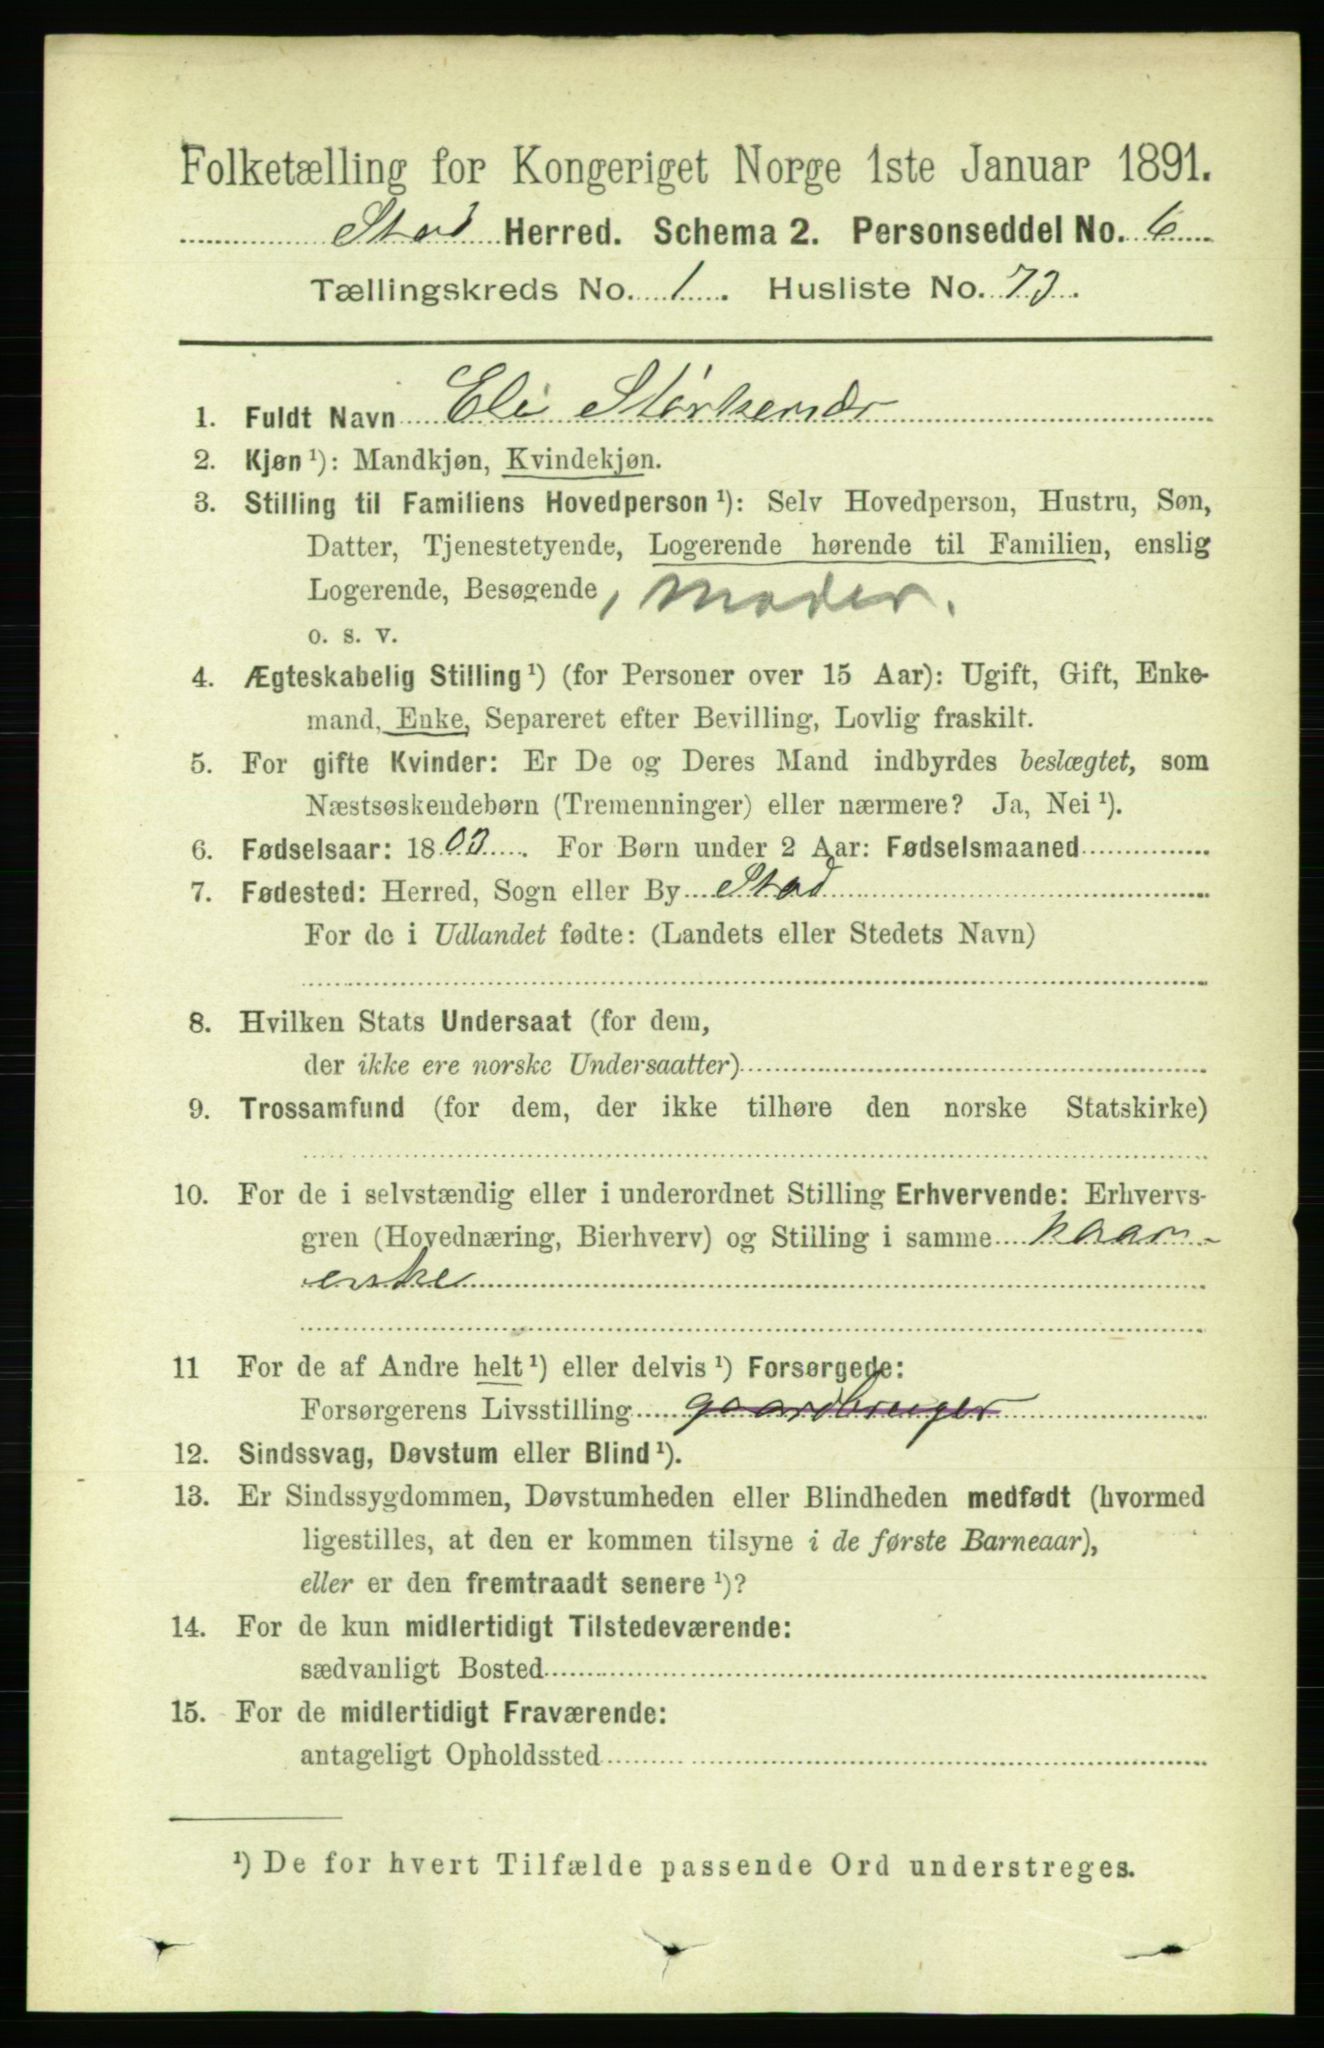 Folketælling for Kongeriget Norge 1ste Januar 1891.
Stod Herred. Schema 2. Personseddel No. 6
Tællingskreds No. 1. Husliste No. 73.
1. Fuldt Navn Eli Størkersdr
2. Kjøn ¹): Mandkjøn, Kvindekjøn.
3. Stilling til Familiens Hovedperson ¹): Selv Hovedperson, Hustru, Søn,
Datter, Tjenestetyende, Logerende hørende til Familien, enslig
Logerende, Besøgende, Moder.
o. s. v.
4. Ægteskabelig Stilling ¹) (for Personer over 15 Aar): Ugift, Gift, Enke-
mand, Enke, Separeret efter Bevilling, Lovlig fraskilt.
5. For gifte Kvinder: Er De og Deres Mand indbyrdes beslægtet, som
Næstsøskendebørn (Tremenninger) eller nærmere? Ja, Nei ¹).
6. Fødselsaar: 1803. For Børn under 2 Aar: Fødselsmaaned
7. Fødested: Herred, Sogn eller By Stod
For de i Udlandet fødte: (Landets eller Stedets Navn)
8. Hvilken Stats Undersaat (for dem,
der ikke ere norske Undersaatter)
9. Trossamfund (for dem, der ikke tilhøre den norske Statskirke)
10. For de i selvstændig eller i underordnet Stilling Erhvervende: Erhvervs-
gren (Hovednæring, Bierhverv) og Stilling i samme kaar-
erske
11 For de af Andre helt ¹) eller delvis ¹) Forsørgede:
Forsørgerens Livsstilling gaardbruger
12. Sindssvag, Døvstum eller Blind ¹).
13. Er Sindssygdommen, Døvstumheden eller Blindheden medfødt (hvormed
ligestilles, at den er kommen tilsyne i de første Barneaar),
eller er den fremtraadt senere ¹)?
14. For de kun midlertidigt Tilstedeværende:
sædvanligt Bosted
15. For de midlertidigt Fraværende:
antageligt Opholdssted
¹) De for hvert Tilfælde passende Ord understreges.